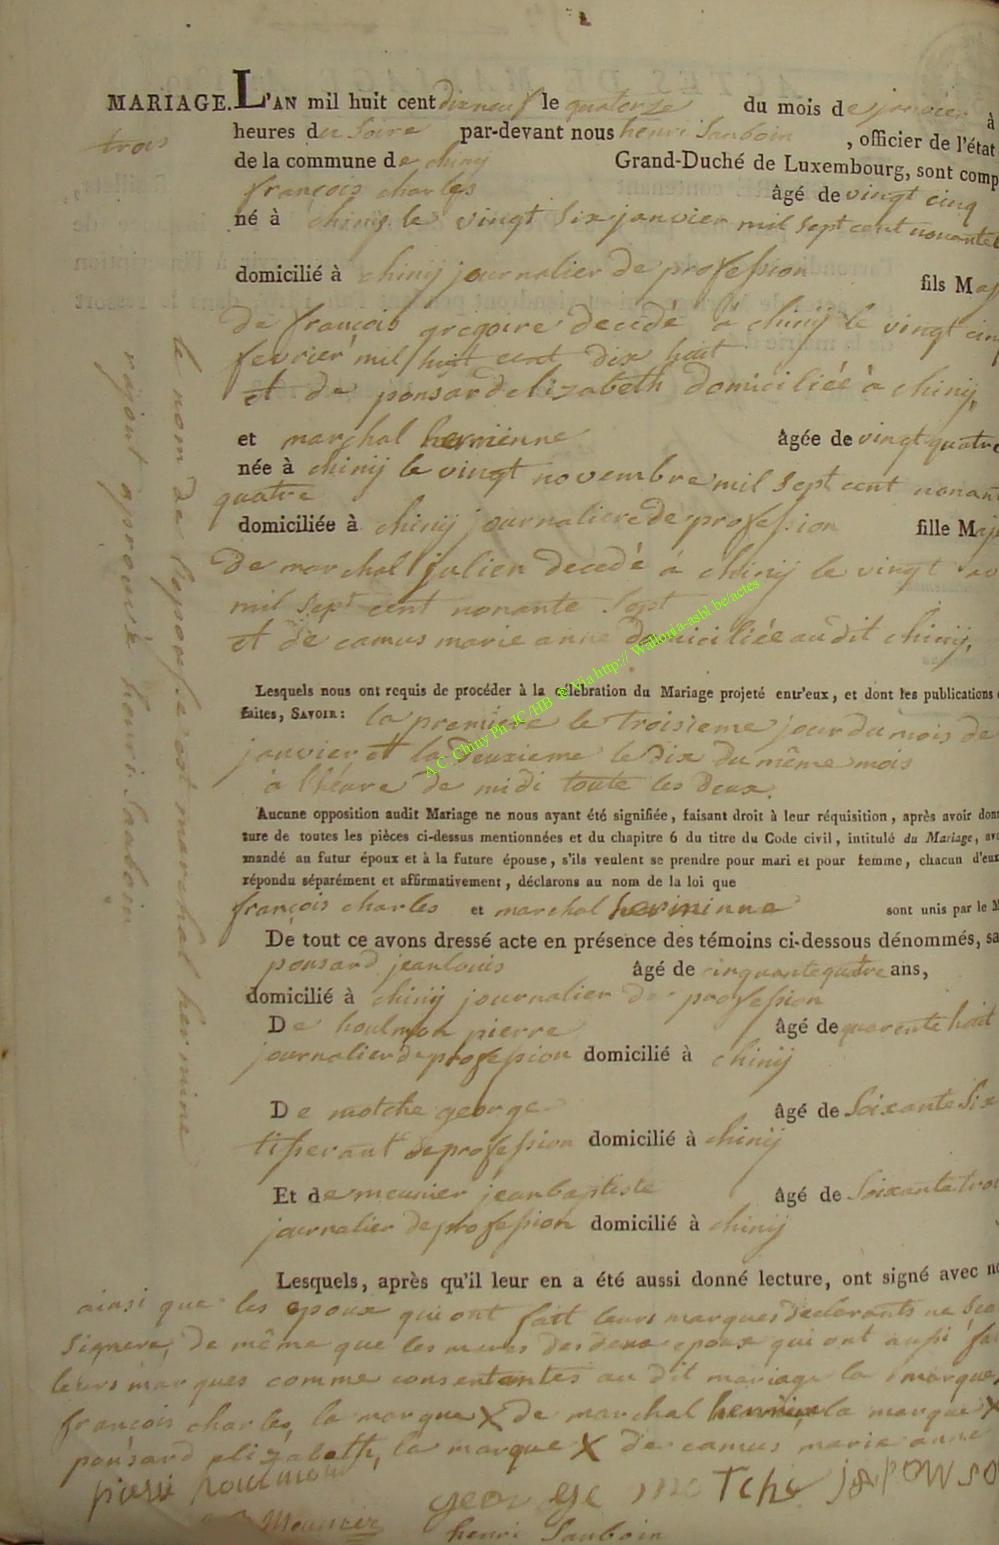 MARIAGE. L'AN mil huit cent dixneuf le quatorze du mois de janvier à
trois heures du Soire par-devant nous henri Sauboin , officier de l'état
de la commune de chinÿ Grand-Duché de Luxembourg, sont comp
françois charles âgé de vingt cinq
né à chinÿ le vingt six janvier mil sept cent nonante
domicilié à chinÿ journalier de profession fils Maj
de françois gregoire decedé à chinÿ le vingt cin
fevrier mil huit cent dix huit
et de ponsard elizabeth domiciliée à chinÿ,
et marchal herminne âgée de vingt quatre
née à chinÿ le vingt novembre mil sept cent nonan
quatre
domiciliée à chinÿ journaliere de profession fille Maj
de marchal julien decedé à chinÿ le vingt
mil sept cent nonante sept
et de camus marie anne domiciliée au dit chinÿ,
Lesquels nous ont requis de procéder à la célébration du Mariage projeté entr'eux, et dont les publications
faites, SAVOIR: la premiere le troisieme jour du mois de
janvier et la deuxieme le dix du même mois
à l'heure de midi toute les deux.
Aucune opposition audit Mariage ne nous ayant été signifiée, faisant droit à leur réquisition, après avoir don
ture de toutes les pièces ci-dessus mentionnées et du chapitre 6 du titre du Code civil, intitulé du Mariage, av
mandé au futur époux et à la future épouse, s'ils veulent se prendre pour mari et pour femme, chacun d'eux
répondu séparément et affirmativement, déclarons au nom de la loi que
françois charles et marchal herminne sont unis par le M
De tout ce avons dressé acte en présence des témoins ci-dessous dénommés, sa
ponsard jean louis âgé de cinquante quatre ans,
domicilié à chinÿ journalier de profession
De houlmon pierre âgé de quarente huit
journalier de profession domicilié à chinÿ
De motche george âgé de Soixante Six
tisserant de profession domicilié à chinÿ
Et de meunier jean baptiste âgé de Soixante troi
journalier de profession domicilié à chinÿ
Lesquels, après qu'il leur en a été aussi donné lecture, ont signé avec no
ainsi que les epoux qui ont fait leurs marques declarants ne sca
signere, de même que les meres des deux epoux qui ont aussi fa
leurs marques comme consentantes au dit mariage la marque
françois charles, la marque X de marchal herminne la marque X
ponsard elizabeth, la marque X de camus marie anne
pierre houlmon george motche j l ponsa
Meunier
henri Sauboin
le nom de l'epouse est marchal hermine
rajout aprouvé henri Sauboin
A.C. Chiny Ph JC/HB ® Via http:// Wallonia-asbl.be/actes